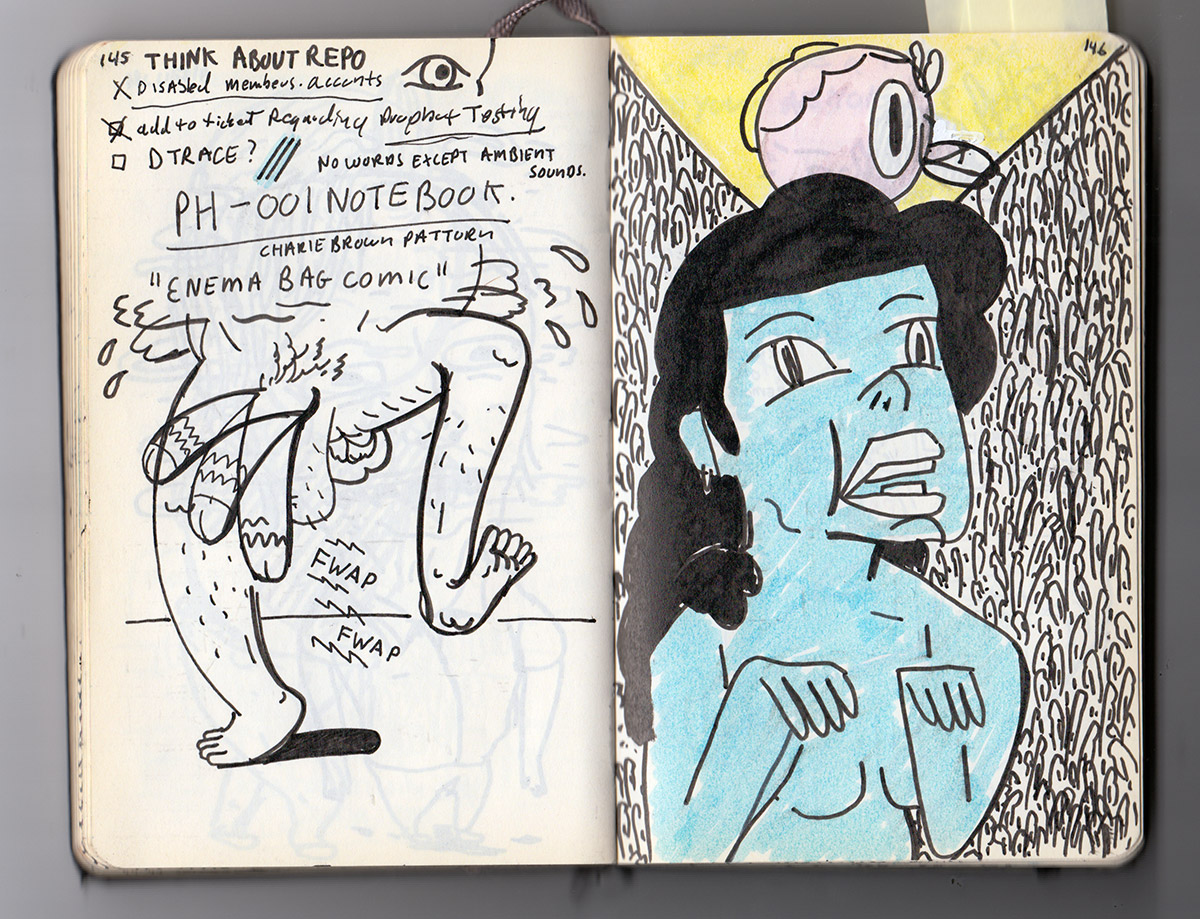 145 THINK ABOUT REPO
X DISABLED members. accounts
add to ticket Regarding Dropbox Testing
DTRACE?
NO WORDS EXCEPT AMBIENT
SOUNDS.
PH-001 NOTEBOOK.
CHARIE BROWN PATTURN
"ENEMA BAG COMIC"
FWAP
FWAP
146